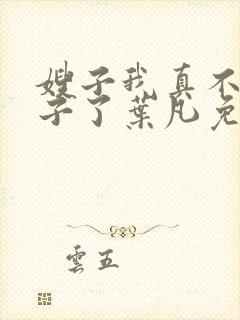 嫂子我真不
子了葉凡免
雲五